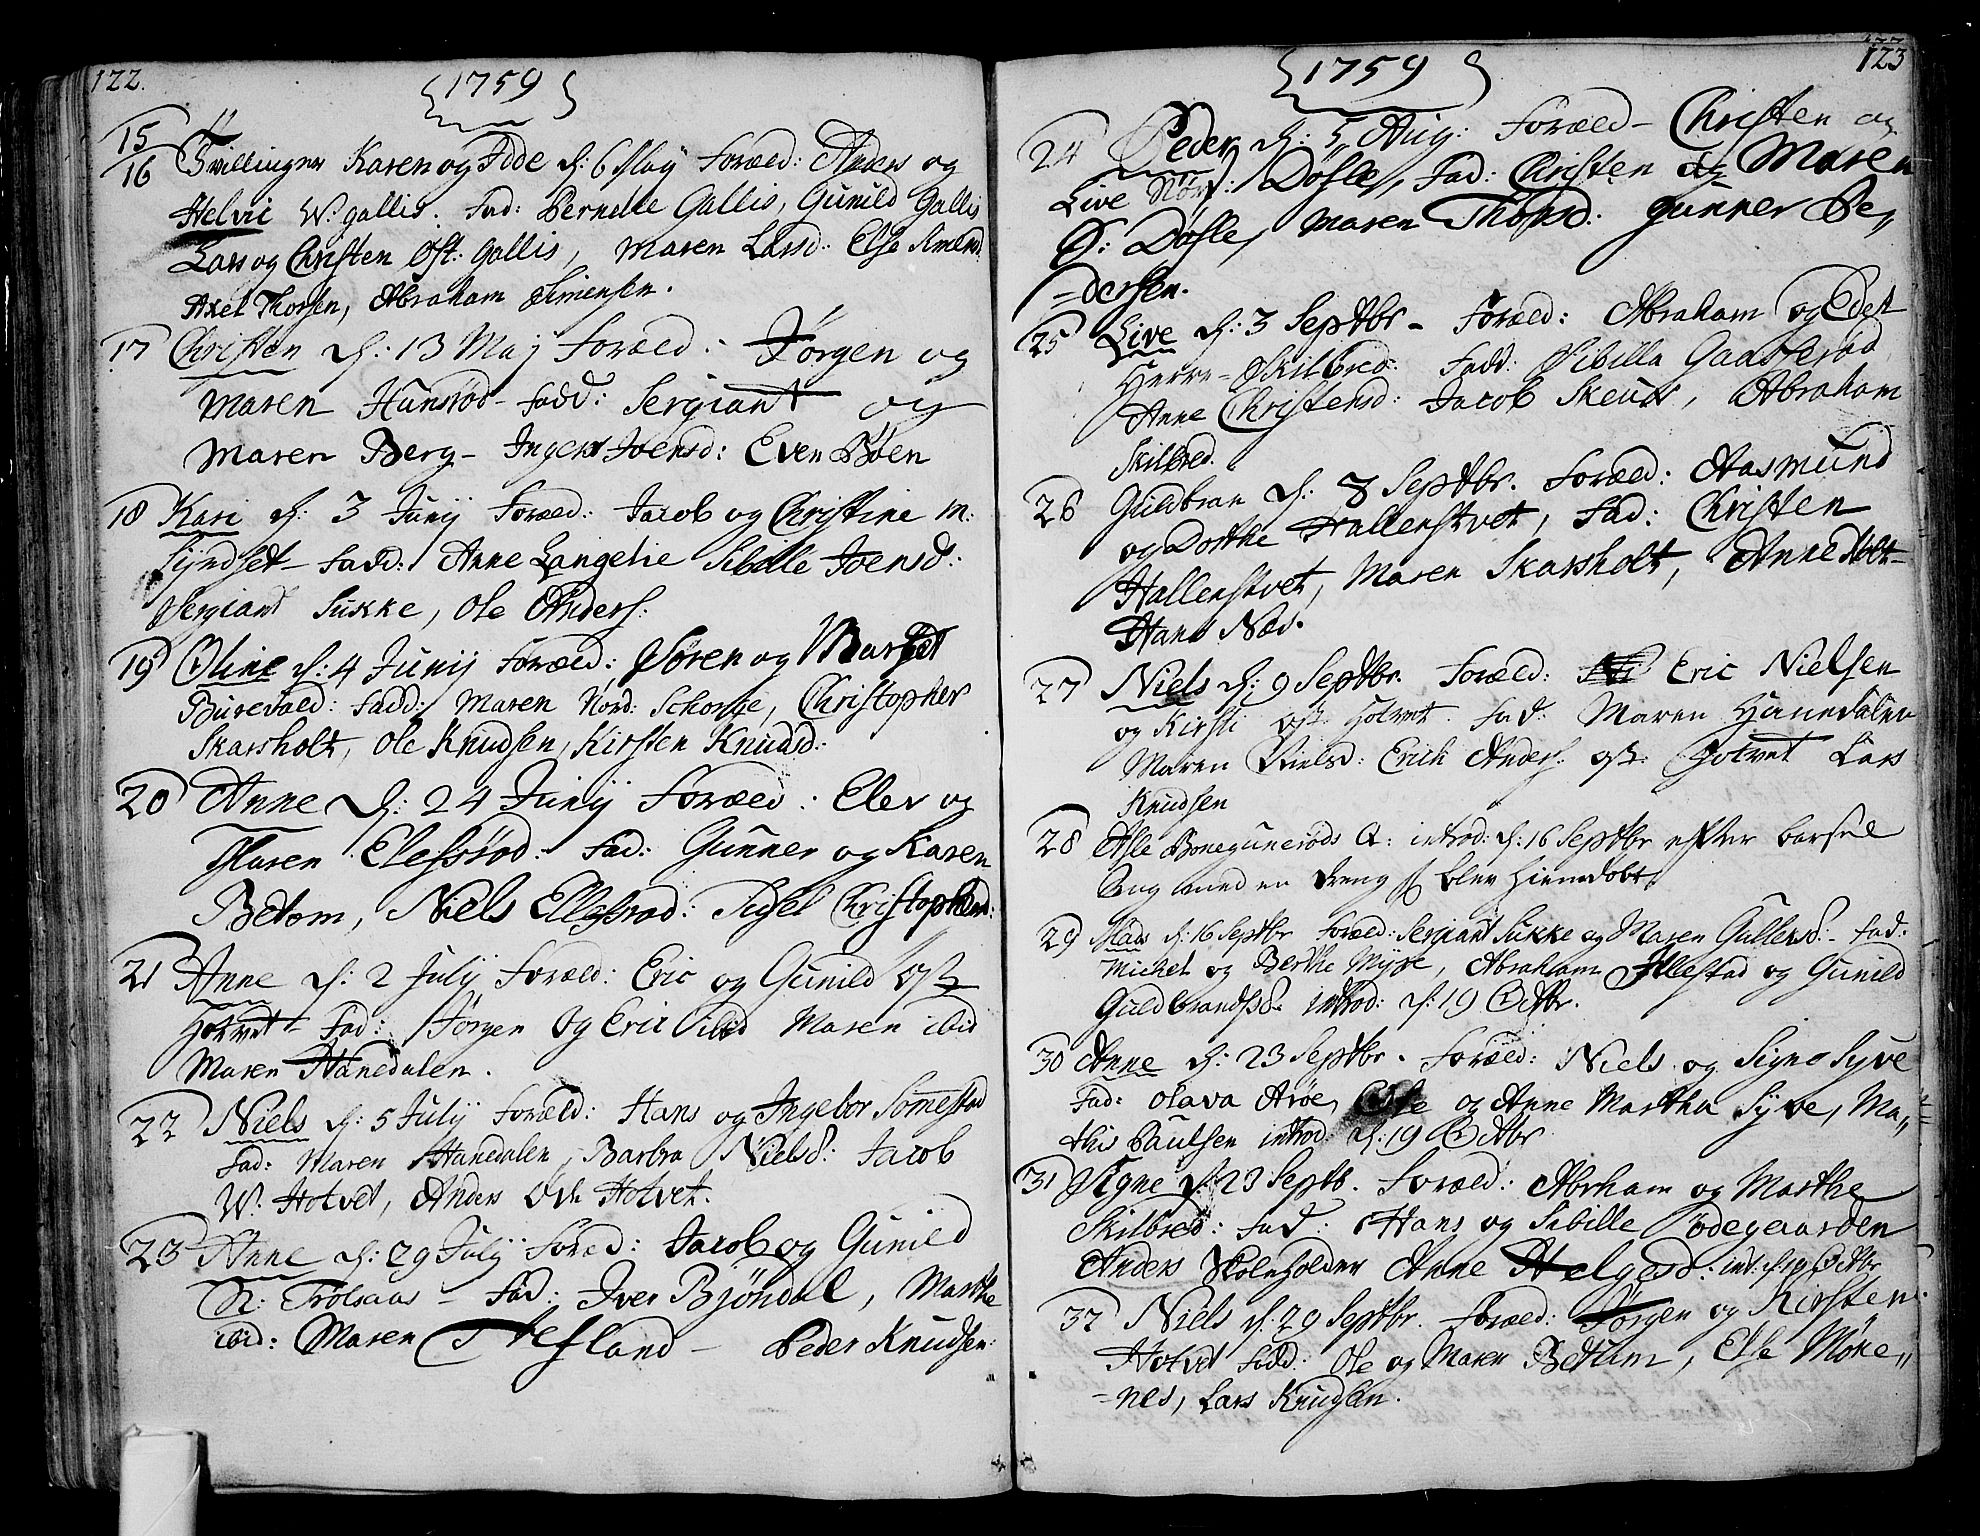 122.
1759
15
16 Tvillinger Karen og Idde d: 6 May Foræld: Anders og
Helvic W. gallis. fad: Pernelle Gallis, Gunild Gallis
Lars og Christen Øst: gallis, Maren Larsd: Else Amunds
Axel Thorsen, Abraham Simensen.
17 Christen d: 13 Maj Foræld: Jørgen og
Maren Hunsrød - fadd: Sergiant og
Maren Berg - Ingebor Joensd: Even Bøen
18 Kari d: 3 Junij Foræld: Jacob og Christine m:
Syndset - fadd: Anne Langelie Sibille Joensd:
Sergiant Sukke, Ole Anders:
19 Oline d: 4 Junij Foræld: Søren og Marget
Burevald: fadd: Maren Nord: Schorge, Christopher
Skarsholt, Ole Knudsen, Kirsten Knudsd:
20 Anne d: 24 Junij Foræld: Elev og
Maren Elefsrød: fad: Gunner og Karen
Betom, Niels Ellefsrød: Sidsel Christophersd:
21 Anne d: 2 Julij Foræld: Eric og Gunild Øst
Hotvet - fad: Jørgen og Eric ibid Maren ibid
Maren Hanedalen.
22 Niels d: 5 Julij Foræld: Hans og Ingebor Somestad
fad: Maren Hanedalen, Barbra Nielsd: Jacob
W. Hotvet, Anders Hotvet.
23 Anne d: 29 Julij Foræld: Jacob og Gunild
N: Trolsaas - fad: Iver Bjøndal, Marthe
ibid: Maren Trefsland - Peder Knudsen:
123
1759
24 Peder d: 5 Aug: Foræld - Christen og
Live Nør: Døfle, fad: Christen og Maren
S: Døfle, Maren Thorsd: gunner Pe„
-dersen.
25 Live d: 3 Septbr - Foræld: Abraham og Edel
Herre - Skilbred: fadd: Sibilla Gaaserød
Anne Christensd: Jacob Skeuds, Abraham
Skilbred.
26 Guldbran d: 8 Septbr. Foræld: Aasmund
og Dorthe Hallenstvet, fad: Christen
Hallenstvet, Maren Skarsholt, Anne Holt -
Hans Næs.
27 Niels d: 9 Septbr. Foræld: Eric Nielsen
og Kirsti øst Hotvet. fad: Maren Hanedalen
Maren Nielsd: Erich Anders: øst: Hotvet Lars
Knudsen
28 Asle Bonegunerøds Q: introd: d: 16 Septbr efter barsel
Sug med en dreng blev hiemdøbt
29 Mads d: 16 Septbr Foræld: Sergiant Sukke og Maren Gullersd: - fad:
Michel og Berthe Myre, Abraham Allestad og Gunild
Guldbrandsd. introd: d: 19 Octbr.
30 Anne d: 23 Septbr. Foræld: Niels og Signe Syve
fad: Olava Arøe, Ole og Anne Martha Syve, Ma„
this Paulsen introd d: 19 Octbr
31 Signe d: 23 Septb. Foræld: Abrham og Marthe
Skilbred: fad: Hans og Sibille ødegaarden
Anders Skoleholder Anne Helgesd: int: d: 19 Octbr
32 Niels d: 29 Septbr. Foræld: Jørgen og Kirsten
Hotvet fadd: Ole og Maren Bettum, Else Møne„
-nes, Lars Knudsen.